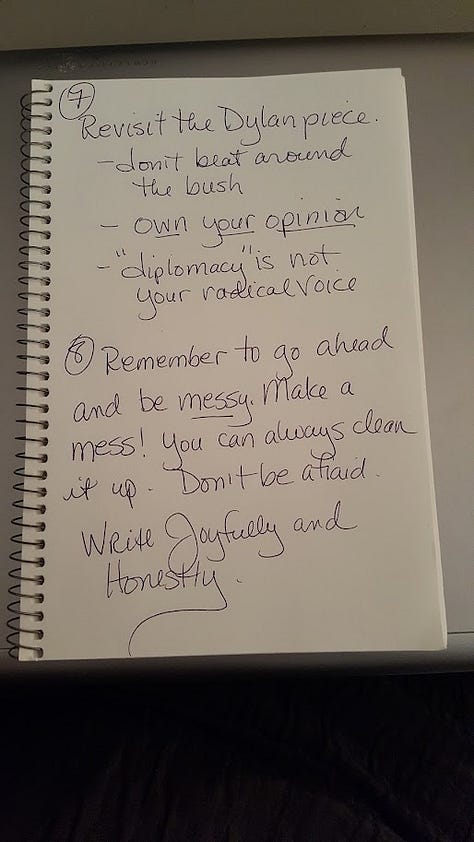 7
Revisit the Dylan piece.
- don't beat around
the bush
- own your opinion
- "diplomacy" is not
your radical voice
8 Remember to go ahead
and be messy. Make a
mess! You can always clean
it up. Don't be afraid.
Write Joyfully and
Honestly.